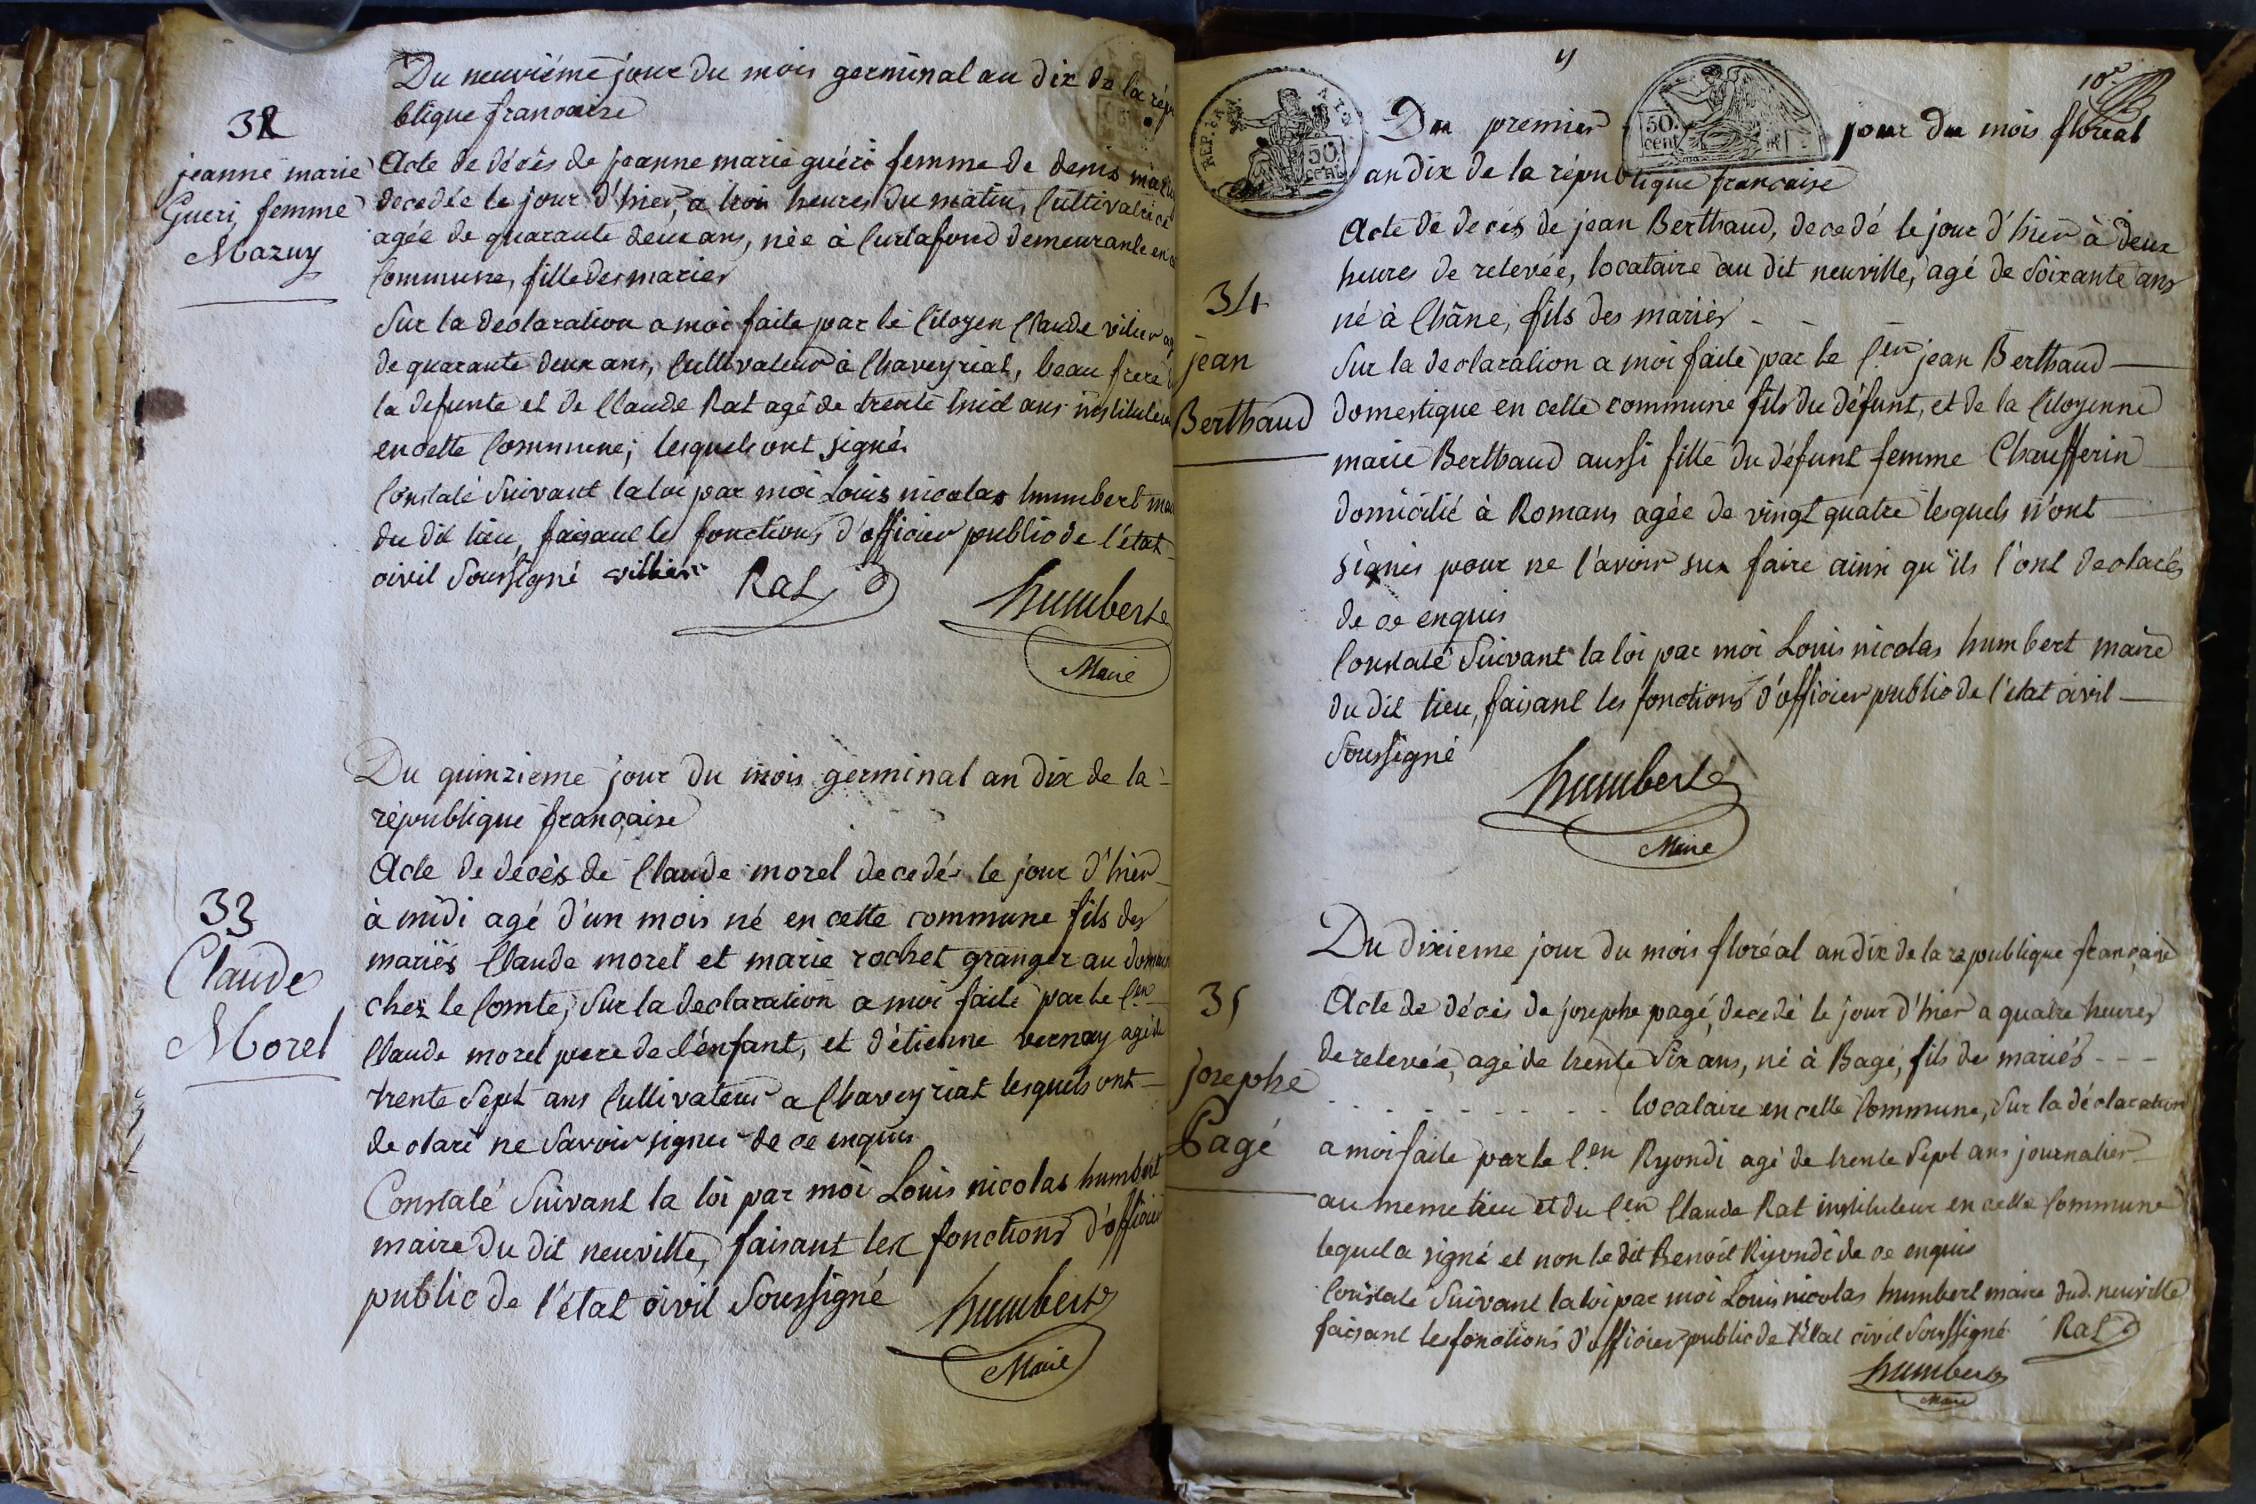 Du neuvième jour du mois germinal an dix de la répu
blique francaise
32
jeanne marie
Gueri, femme
Mazuy
Acte de décès de jeanne marie guéri femme de denis
decedée le jour d'hier, a trois heures du matin, Cultivatrice
agée de quarante deux ans, née à Curtafond demeurante en
Commune, fille des mariés
Sur la declaration a moi faite par le Citoyen Claude vilier
de quarante deux ans, Cultivateur à Chaveyriat, beau frere
la defunte et de Claude Rat agé de trente huit ans instituteur
en cette Commune; lesquels ont signés
Constaté Suivant la loi par moi Louis nicolas humbert
du dit lieu, faisant les fonctions d'officier public de l'état
civil Soussigné villier Rat humbert
Maire
Du quinzieme jour du mois germinal an dix de la
république française
33
Claude
Morel
Acte de décès de Claude morel decedé le jour d'hier
à midi agé d'un mois né en cette commune fils des
mariés Claude morel et marie rochet granger au
chez le Comte, Sur la declaration a moi faite par le C.en
Claude morel pere de l'enfant, et d'étienne vernay agé de
trente Sept ans Cultivateur a Chaveyriat lesquels ont
declaré ne Savoir signer de ce enquis
Constaté Suivant la loi par moi Louis nicolas humbert
maire du dit neuville, faisant les fonctions d'officier
public de l'état civil Soussigné humbert
Maire
10e
REP. FRA.
50 cent
50. cent
Du premier jour du mois floréal
an dix de la république française
34
jean
Berthaud
Acte de decès de jean Berthaud, decedé le jour d'hier à deux
heures de relevée, locataire au dit neuville, agé de Soixante ans
né à Châne, fils des mariés - - -
Sur la declaration a moi faite par le C.en jean Berthaud
domestique en cette commune fils du défunt, et de la Citoyenne
marie Berthaud aussi fille du défunt femme Chaufferin
domicilié à Romans agée de vingt quatre lesquels n'ont
signés pour ne l'avoir su faire ainsi qu'ils l'ont declarés
de ce enquis
Constaté Suivant la loi par moi Louis nicolas humbert maire
du dit lieu, faisant les fonctions d'officier public de l'état civil
Soussigné
humbert
Maire
Du dixieme jour du mois floréal an dix de la republique française
35
josephe
Pagé
Acte de décès de josephe pagé, decedé le jour d'hier a quatre heures
de relevée, agé de trente Six ans, né à Bagé, fils des mariés - - -
- - - - - - - - - locataire en cette Commune, Sur la déclaration
a moi faite par le C.en Ryondi agé de trente Sept ans journalier
au meme lieu et du C.en Claude Rat instituteur en cette Commune
lequel a signé et non le dit Benoit Ryondi de ce enquis
Constaté Suivant la loi par moi Louis nicolas humbert maire dud. neuville
faisant les fonctions d'officier public de l'état civil Soussigné Rat
humbert
Maire